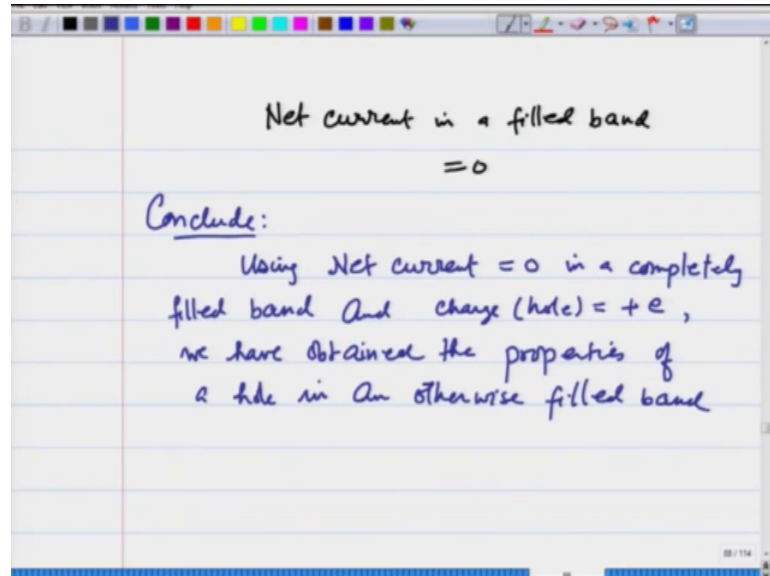 Net current in a filled band
= 0
Conclude:
Using Net current = 0 in a completely
filled band And charge (hole) = + e ,
we have obtained the properties of
a hole in an otherwise filled band
88 / 114